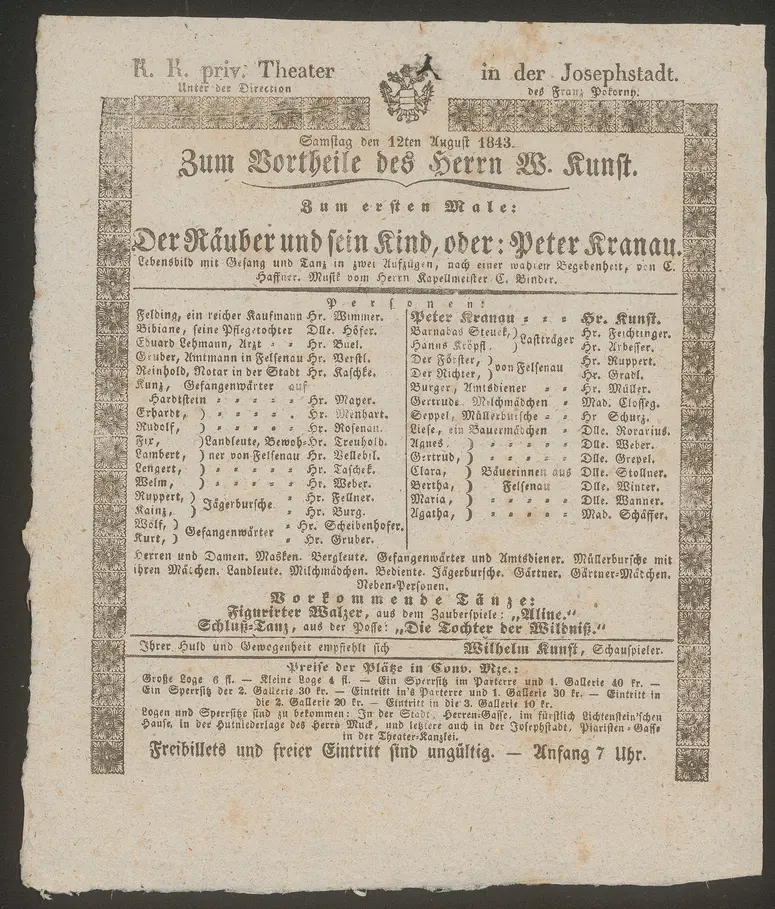 K. K. priv. Theater in der Josephstadt.
Unter der Direction des Franz Pokorny.
Samstag den 12ten August 1843.
Zum Vortheile des Herrn W. Kunst.
Zum ersten Male:
Der Räuber und sein Kind, oder: Peter Kranau.
Lebensbild mit Gesang und Tanz in zwei Aufzügen, nach einer wahren Begebenheit, von C.
Haffner. Musik vom Herrn Kapellmeister C. Binder.
Personen:
Felding, ein reicher Kaufmann Hr. Wimmer.
Bibiane, seine Pflegetochter Dlle. Höfer.
Eduard Lehmann, Arzt = = Hr. Buel.
Gruber, Amtmann in Felsenau Hr. Verstl.
Reinhold, Notar in der Stadt Hr. Kaschke.
Kunz, Gefangenwärter auf
Hardtstein = = = = = Hr. Mayer.
Erhardt, ) = = = = = Hr. Meinhart.
Rudolf, ) = = = = = Hr. Rosenau.
Fix, )Landleute, Bewoh= Hr. Treuhold.
Lambert, ) ner von Felsenau Hr. Vellebil.
Lengert, ) = = = = = Hr. Taschek.
Welm, ) = = = = = Hr. Weber.
Ruppert, ) Jägerbursche = Hr. Fellner.
Kainz, ) = Hr. Burg.
Wolf, ) Gefangenwärter = Hr. Scheibenhofer.
Kurt, ) = Hr. Gruber.
Peter Kranau = = = Hr. Kunst.
Barnabas Steuck, ) Lastträger Hr. Feichtinger.
Hanns Kröpfl, ) Hr. Arbesser.
Der Förster, ) von Felsenau Hr. Ruppert.
Der Richter, ) Hr. Gradl.
Burger, Amtsdiener = = Hr. Müller.
Gertrude Milchmädchen = Mad. Closseg.
Seppel, Müllerbursche = = Hr Schurz.
Liese, ein Bauermädchen = Dlle. Rorarius.
Agnes ) = = = = = Dlle. Weber.
Gertrud, ) = = = = = Dlle. Grepel.
Clara, ) Bäuerinnen aus Dlle. Stollner.
Bertha, ) Felsenau Dlle. Winter.
Maria, ) = = = = = Dlle. Wanner.
Agatha, ) = = = = = Mad. Schäffer.
Herren und Damen. Masken. Bergleute. Gefangenwärter und Amtsdiener. Müllerbursche mit
ihren Mädchen. Landleute. Milchmädchen. Bediente. Jägerbursche. Gärtner. Gärtner=Mädchen.
Neben=Personen.
Vorkommende Tänze:
Figurirter Walzer, aus dem Zauberspiele: „Aline.“
Schluß=Tanz, aus der Posse: „Die Tochter der Wildniß.“
Ihrer Huld und Gewogenheit empfiehlt sich Wilhelm Kunst, Schauspieler.
Preise der Plätze in Conv. Mze.:
Große Loge 6 fl. — Kleine Loge 4 fl. — Ein Sperrsitz im Parterre und 1. Gallerie 40 kr. —
Ein Sperrsitz der 2. Gallerie 30 kr. — Eintritt in's Parterre und 1. Gallerie 30 kr. — Eintritt in
die 2. Gallerie 20 kr. — Eintritt in die 3. Gallerie 10 kr.
Logen und Sperrsitze sind zu bekommen: In der Stadt, Herren=Gasse, im fürstlich Lichtenstein'schen
Hause, in der Hutniederlage des Herrn Muck, und letztere auch in der Josephstadt, Piaristen=Gasse
in der Theater=Kanzlei.
Freibillets und freier Eintritt sind ungültig. — Anfang 7 Uhr.